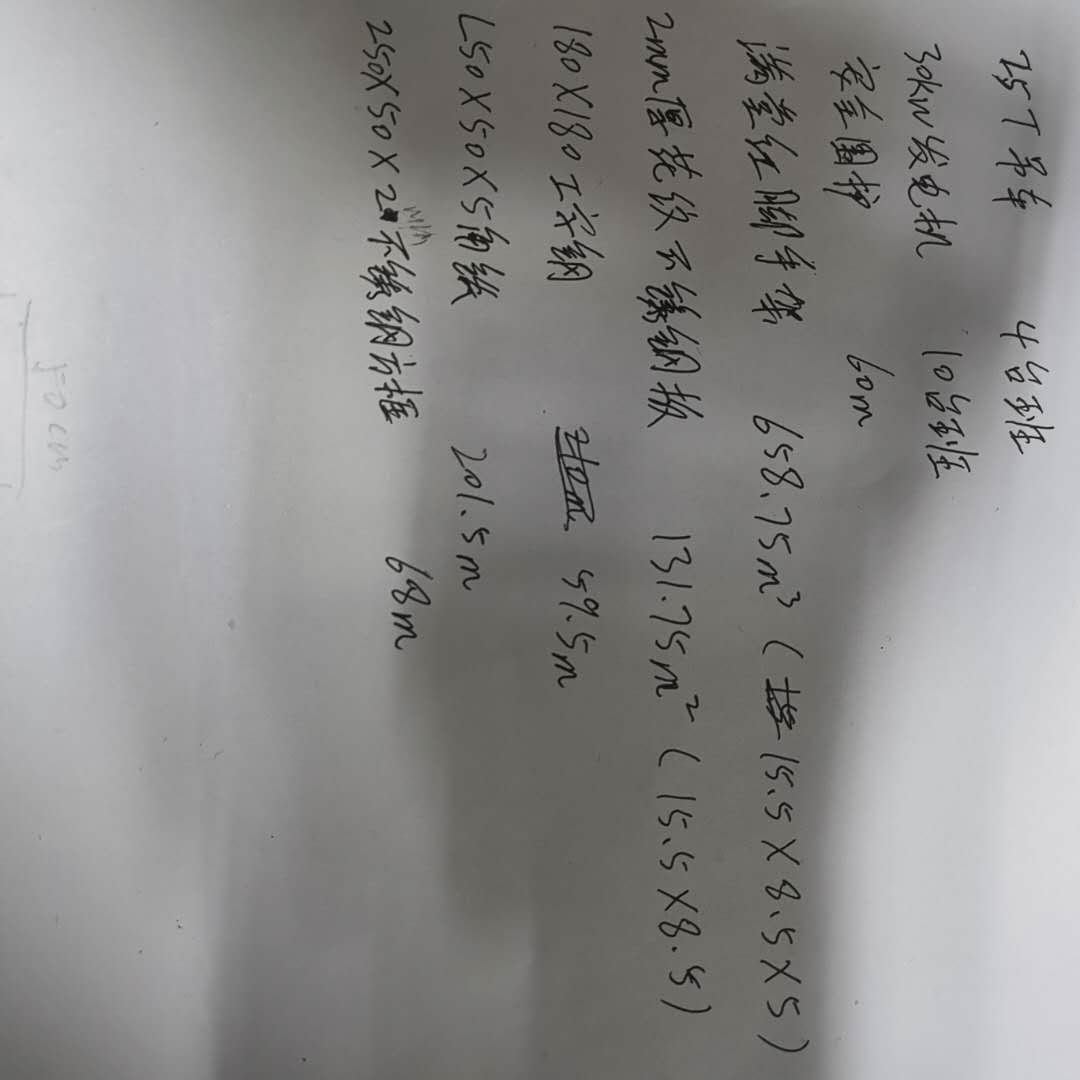 25T吊车 4台班
30kW发电机 10台班
安全围护 60m
满堂红脚手架 658.75m³ (15.5×8.5×5)
2mm厚花纹不锈钢板 131.75m² (15.5×8.5)
180×180工字钢 59.5m
L50×50×5角铁 201.5m
250×50×2mm不锈钢方挂 68m
50cm